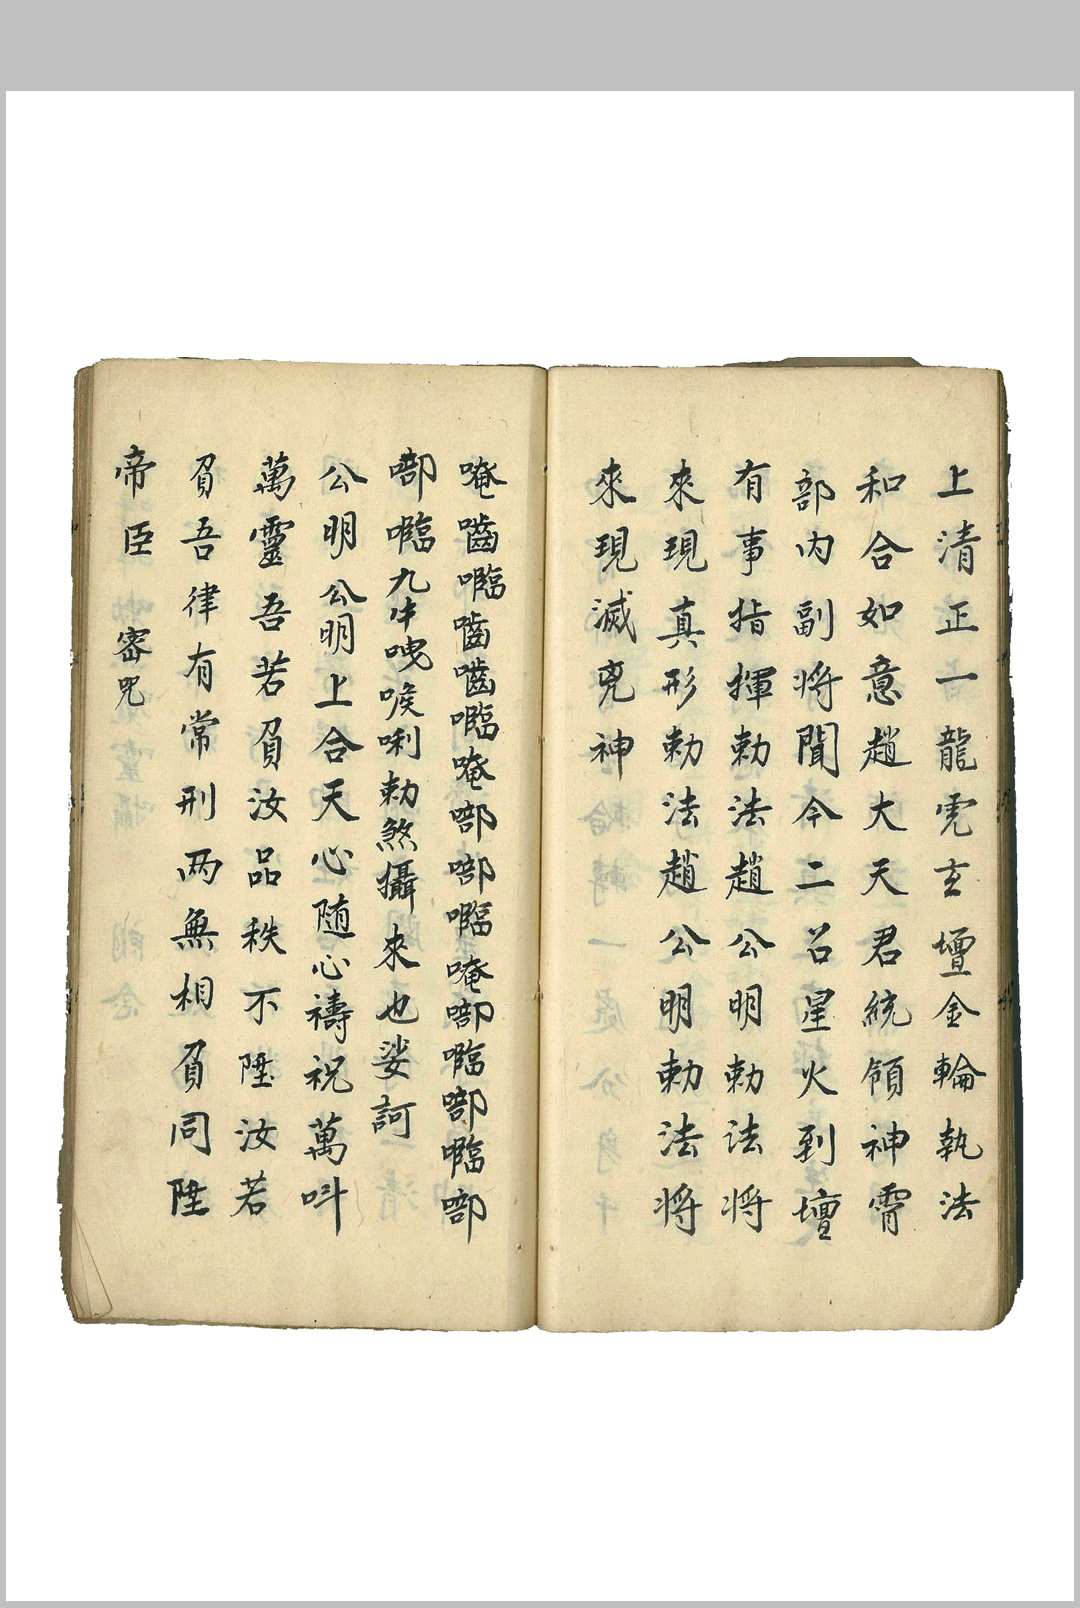 上清正一龍虎玄壇金輪執法
和合如意趙大天君統領神霄
部内副將聞今二召星火到壇
有事指揮勅法趙公明勅法將
來現真形勅法趙公明勅法將
來現滅兇神
唵嚙𡅖嚙嚙𡅖唵啣啣𡅖唵啣𡅖啣𡅖啣
啣𡅖九牛㖂唳唎勅煞攝來也娑訶
公明公明上合天心随心禱祝萬呌
萬靈吾若負汝品秩不陞汝若
負吾律有常刑两無相負同陞
帝臣 密咒